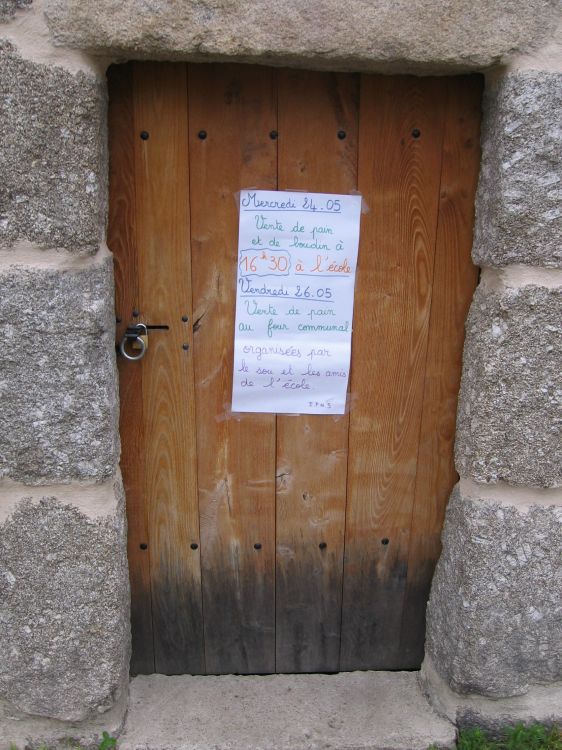 Mercredi 24.05
Vente de pain
et de boudin à
16h30 à l'école
Vendredi 26.05
Vente de pain
au four communal
organisées par
le sou et les amis
de l'école.